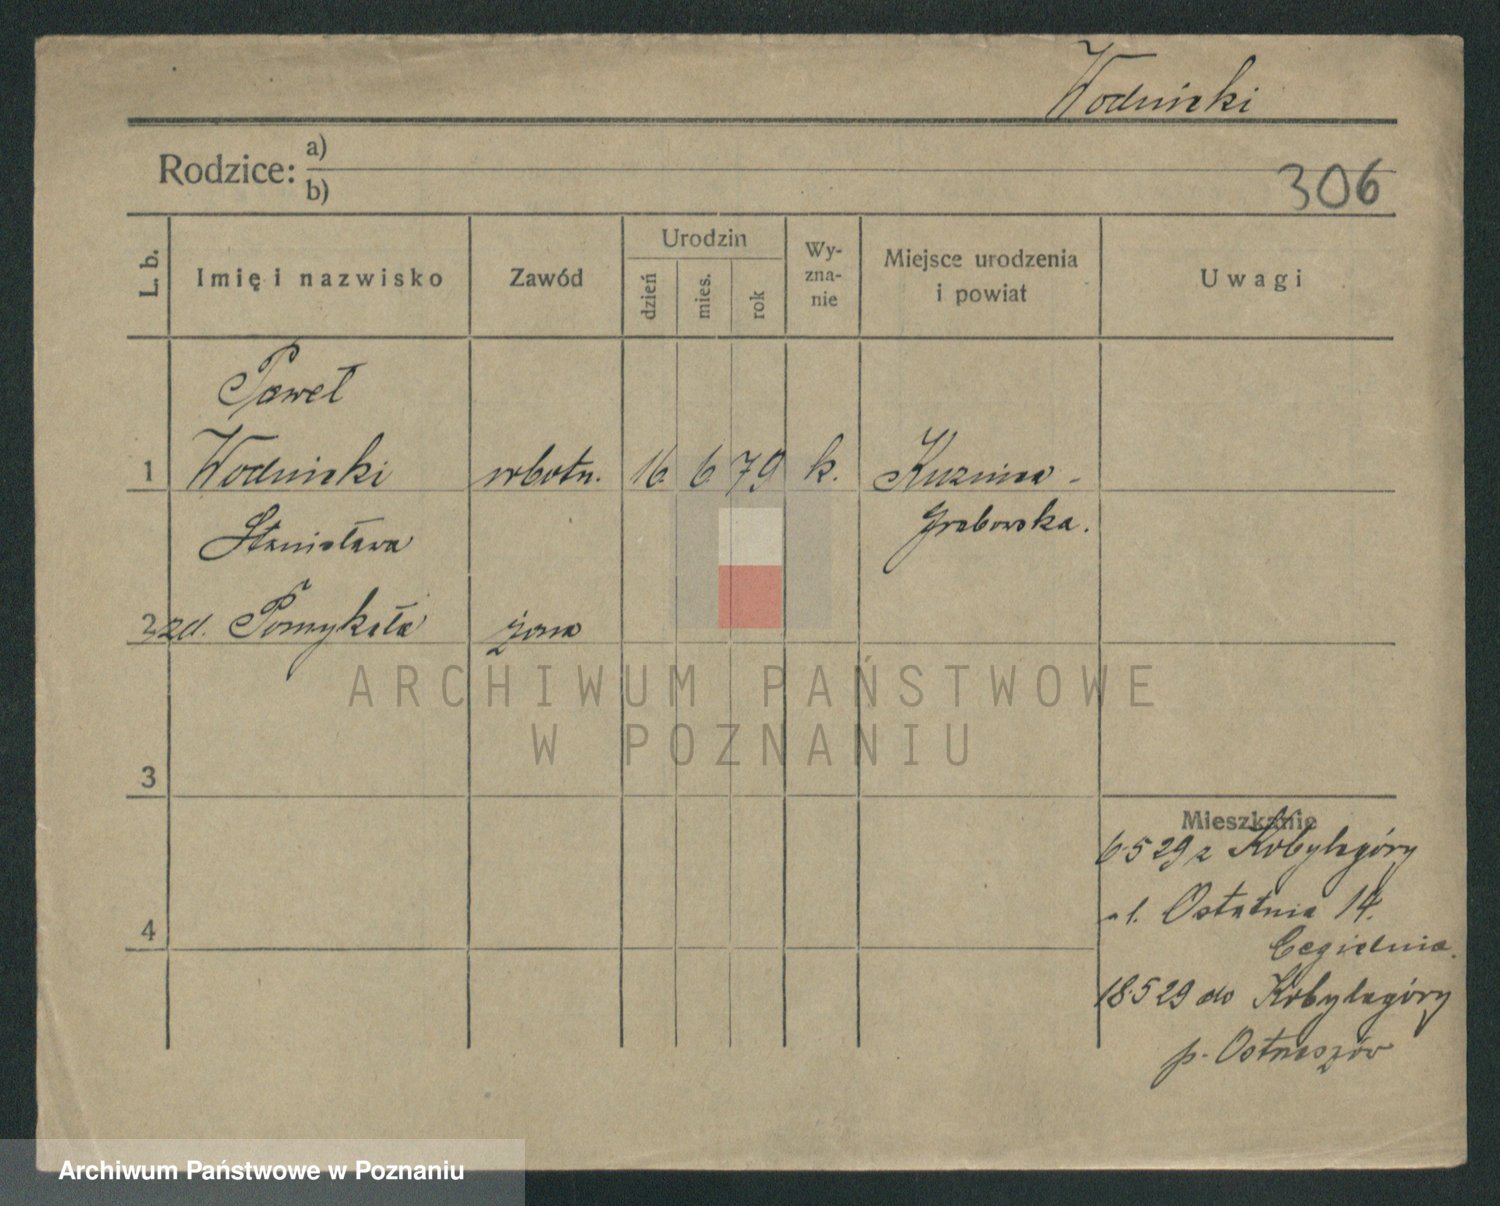 Wodnicki
Rodzice: a)
b)
306
L. b.
Imię i nazwisko
Zawód
Urodzin
dzień
mies.
rok
Wy-
zna-
nie
Miejsce urodzenia
i powiat
Uwagi
Paweł
1 Wodnicki robotn. 16 6 79 k. Kuźnica -
Grabowska.
Stanisława
2 zd. Pomykała żona
ARCHIWUM PAŃSTWOWE
W POZNANIU
3
Mieszkanie
6.5 29 z Kobylagóry
ul. Ostatnia 14.
Cegielnia.
4
18.5 29 do Kobylagóry
p. Ostrzeszów
Archiwum Państwowe w Poznaniu